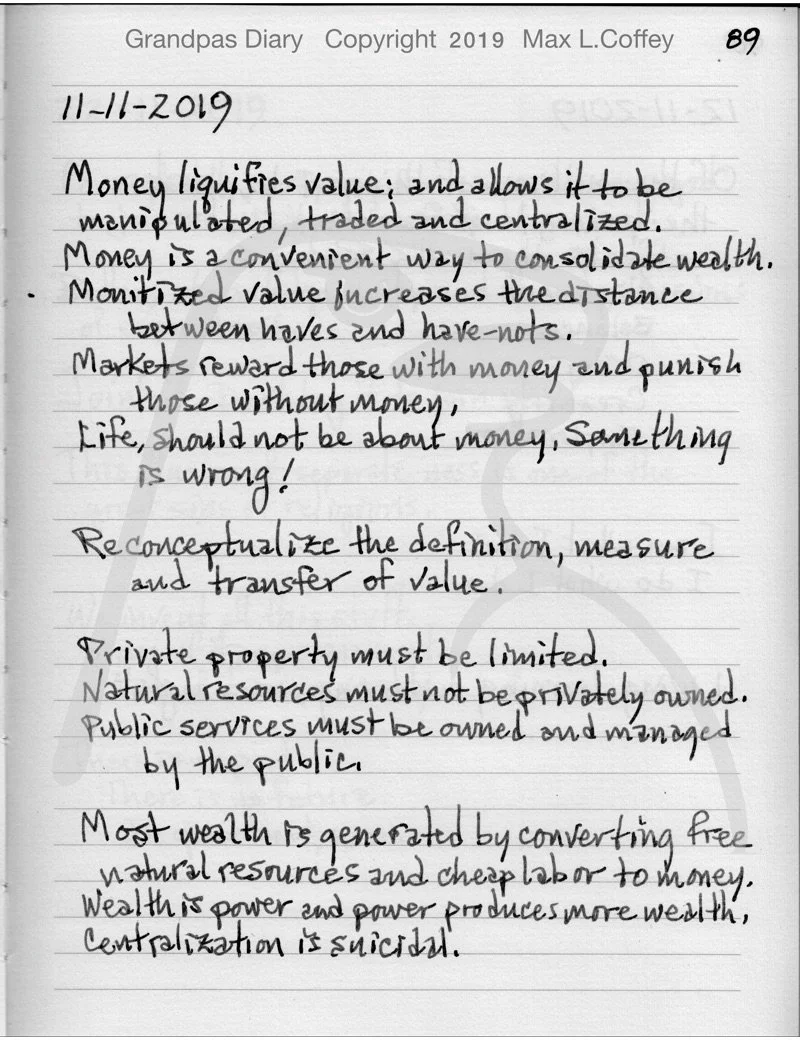 Grandpas Diary Copyright 2019 Max L.Coffey 89
11-11-2019
Money liquifies value; and allows it to be
manipulated, traded and centralized.
Money is a convenient way to consolidate wealth.
Monitized value increases the distance
between haves and have-nots.
Markets reward those with money and punish
those without money,
Life, should not be about money, Something
is wrong!
Reconceptualize the definition, measure
and transfer of value.
Private property must be limited.
Natural resources must not be privately owned.
Public services must be owned and managed
by the public.
Most wealth is generated by converting free
natural resources and cheap labor to money.
Wealth is power and power produces more wealth,
Centralization is suicidal.